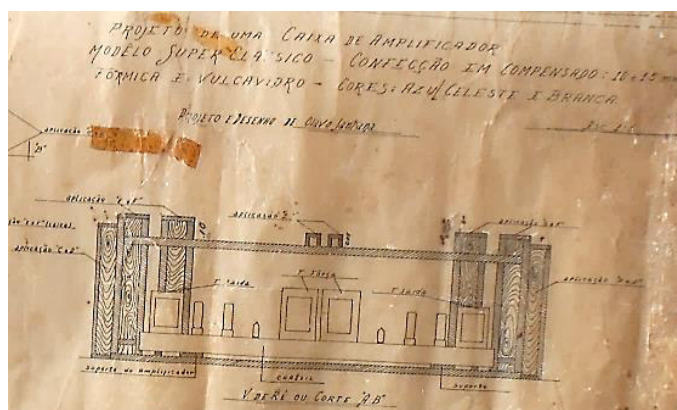 PROJETO DE UMA CAIXA DE AMPLIFICADOR
MODÊLO SUPER CLÁSSICO - CONFECÇÃO EM COMPENSADO: 10 e 15 mm
FÓRMICA E VULCAVIDRO - CORES: AZUL CELESTE E BRANCA.
PROJETO E DESENHO DE Olavo Santana
aplicação
"B"
aplicação
aplicação
aplicação
aplicação
aplicação
T. saída
T. fôrça
T. saída
aplicação
suporte do amplificador
chassis
suporte
V. DE RÉ OU CORTE "A-B"